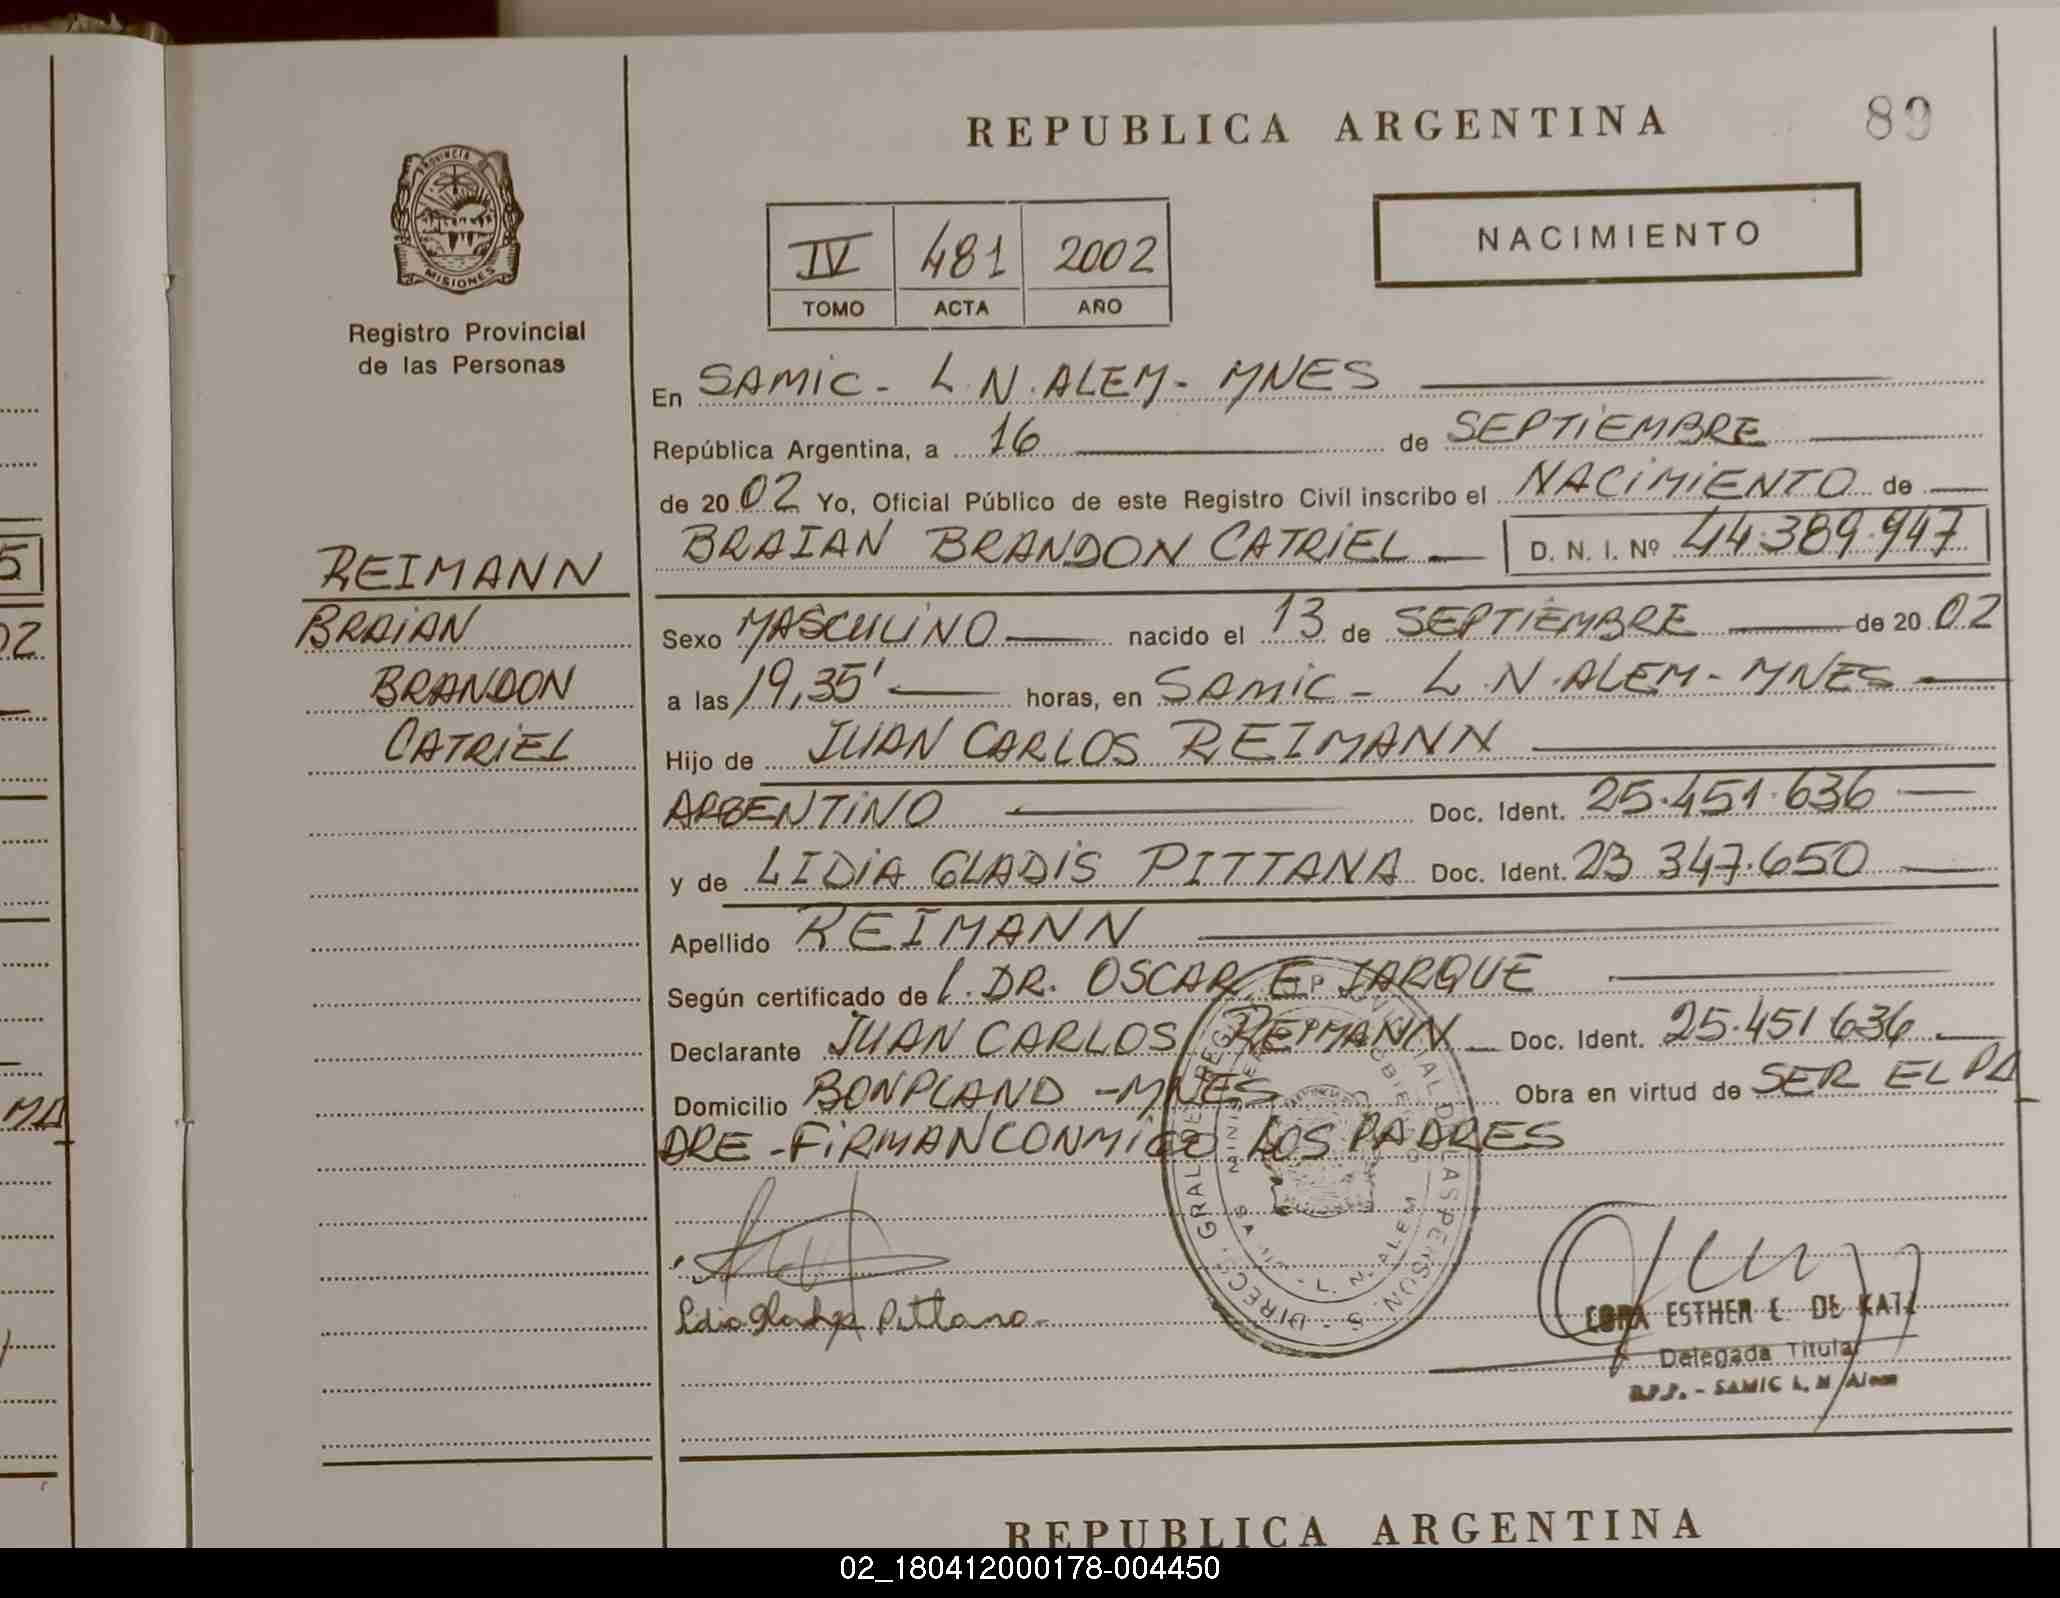 REPUBLICA ARGENTINA
89
PROVINCIA DE
MISIONES
Registro Provincial
de las Personas
IV 481 2002
TOMO ACTA AÑO
NACIMIENTO
En SAMIC - L.N. ALEM - MNES
República Argentina, a 16 de SEPTIEMBRE
de 2002 Yo, Oficial Público de este Registro Civil inscribo el NACIMIENTO de
BRAIAN BRANDON CATRIEL D. N. I. Nº 44.389.947
REIMANN
BRAIAN
BRANDON
CATRIEL
Sexo MASCULINO nacido el 13 de SEPTIEMBRE de 2002
a las 19,35' horas, en SAMIC - L.N. ALEM - MNES
Hijo de JUAN CARLOS REIMANN
ARGENTINO Doc. Ident. 25.451.636
y de LIDIA GLADIS PITTANA Doc. Ident. 23 347.650
Apellido REIMANN
Según certificado de l. DR. OSCAR E. JARQUE
Declarante JUAN CARLOS REIMANN Doc. Ident. 25.451 636
Domicilio BONPLAND - MNES Obra en virtud de SER EL PA
DRE - FIRMAN CONMIGO LOS PADRES
Lidia Gladis Pittana
ESTHER E. DE KATZ
Delegada Titular
R.P.P. - SAMIC L. N. Alem
REPUBLICA ARGENTINA
02_180412000178-004450